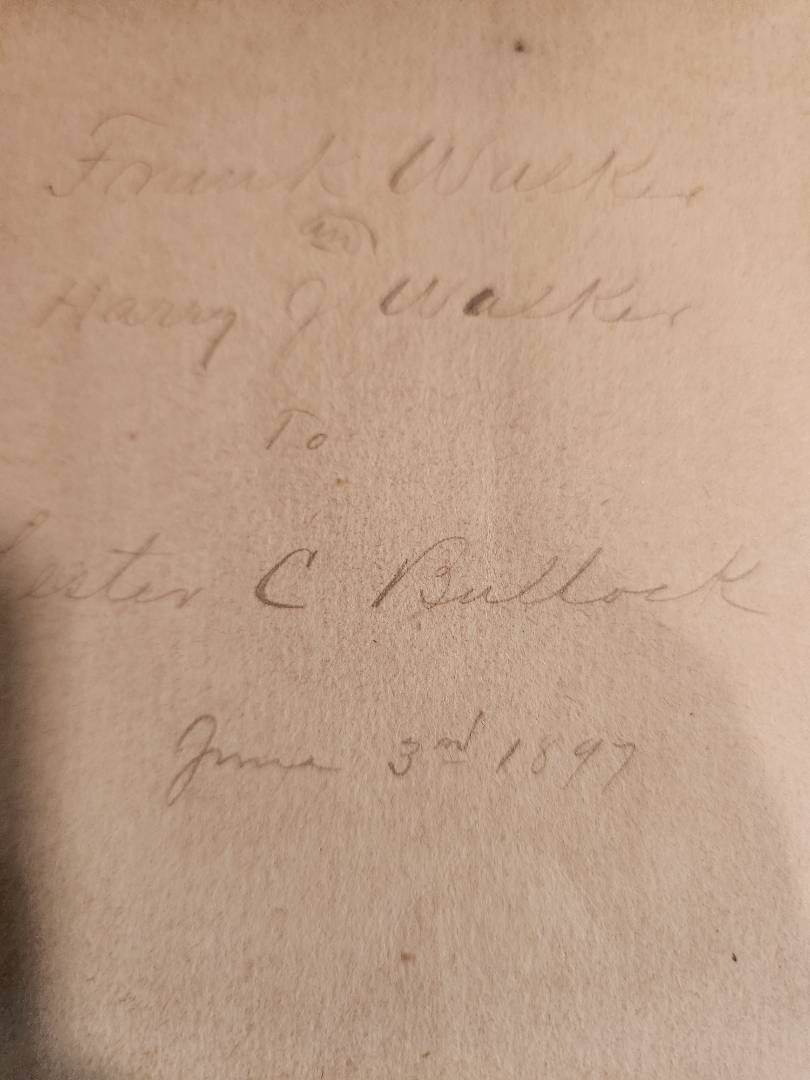 Frank Walker
and
Harry J Walker
To
Lester C Bullock
June 3rd 1897